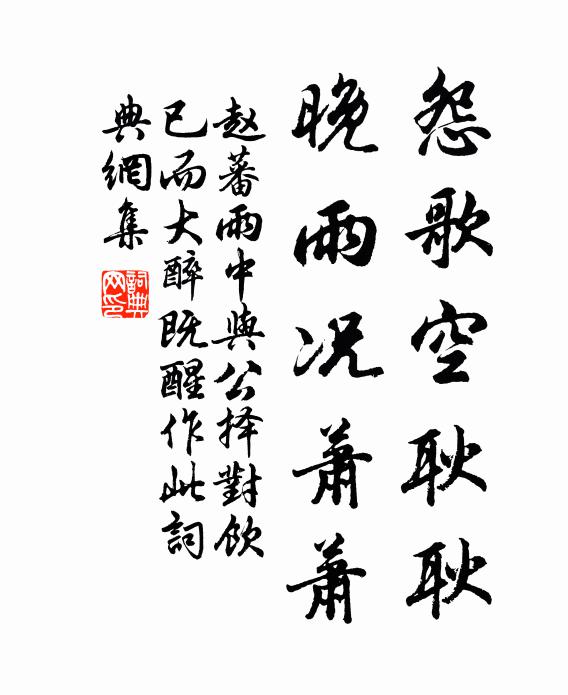 怨歌空耿耿
晚雨况萧萧
赵蕃雨中與公择對飲
已而大醉既醒作此詞
典網集
詞典网印